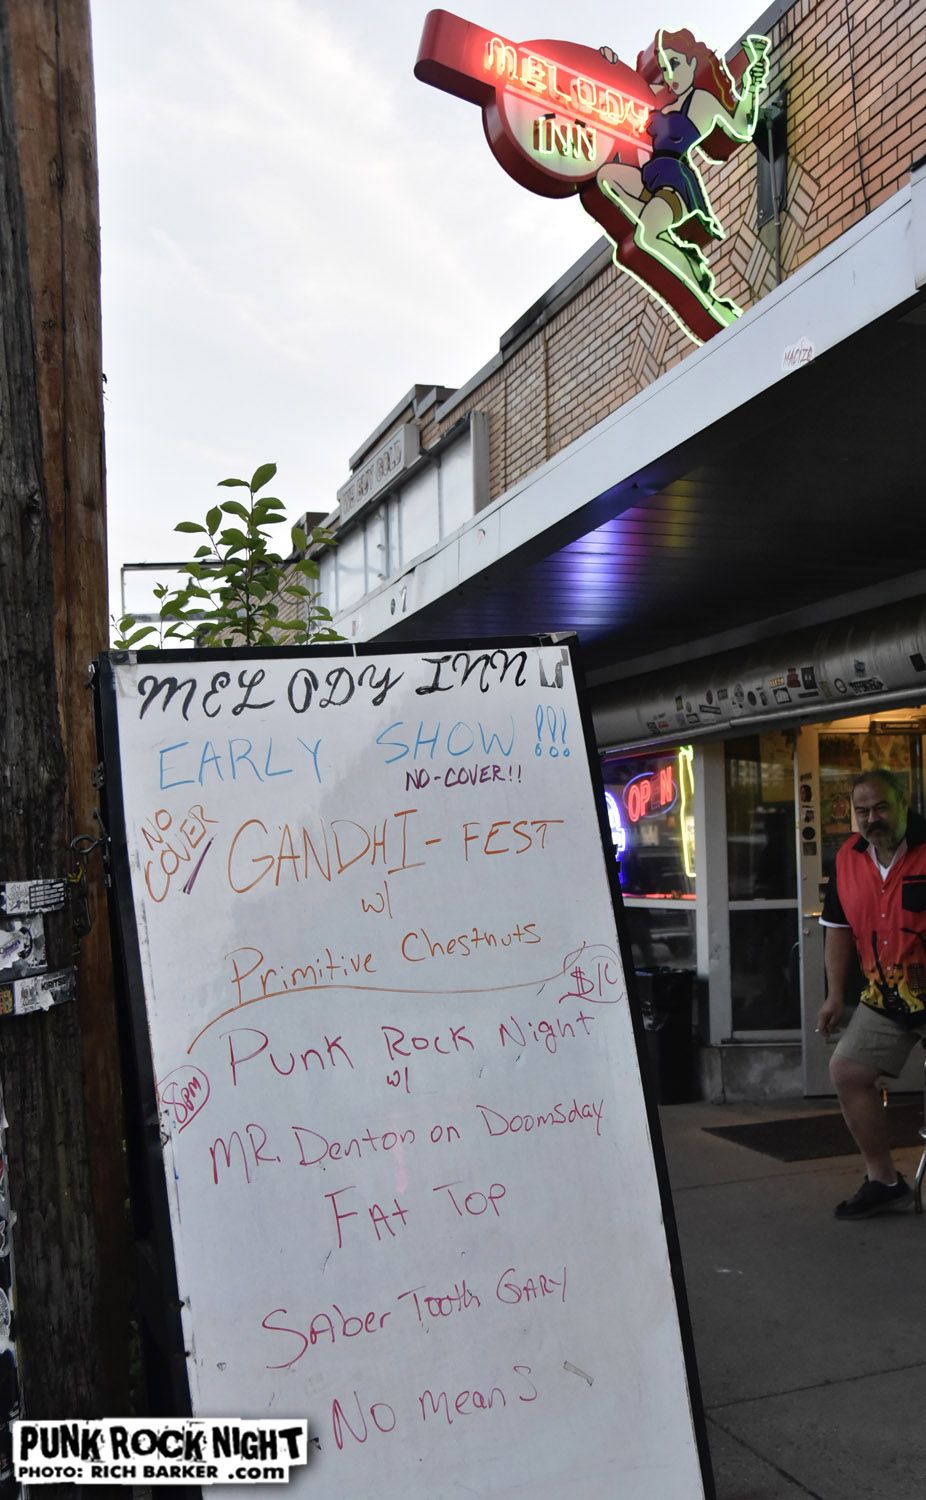 MELODY
INN
MADIZR
OPEN
MELODY INN
EARLY SHOW!!!
NO-COVER!!
NO
COVER
GANDHI-FEST
w/
Primitive Chestnuts
$10
Punk Rock Night
w/
8pm
MR. Denton on Doomsday
FAt TOP
SABer Tooth GARY
No means
PUNK ROCK NIGHT
PHOTO: RICH BARKER .com